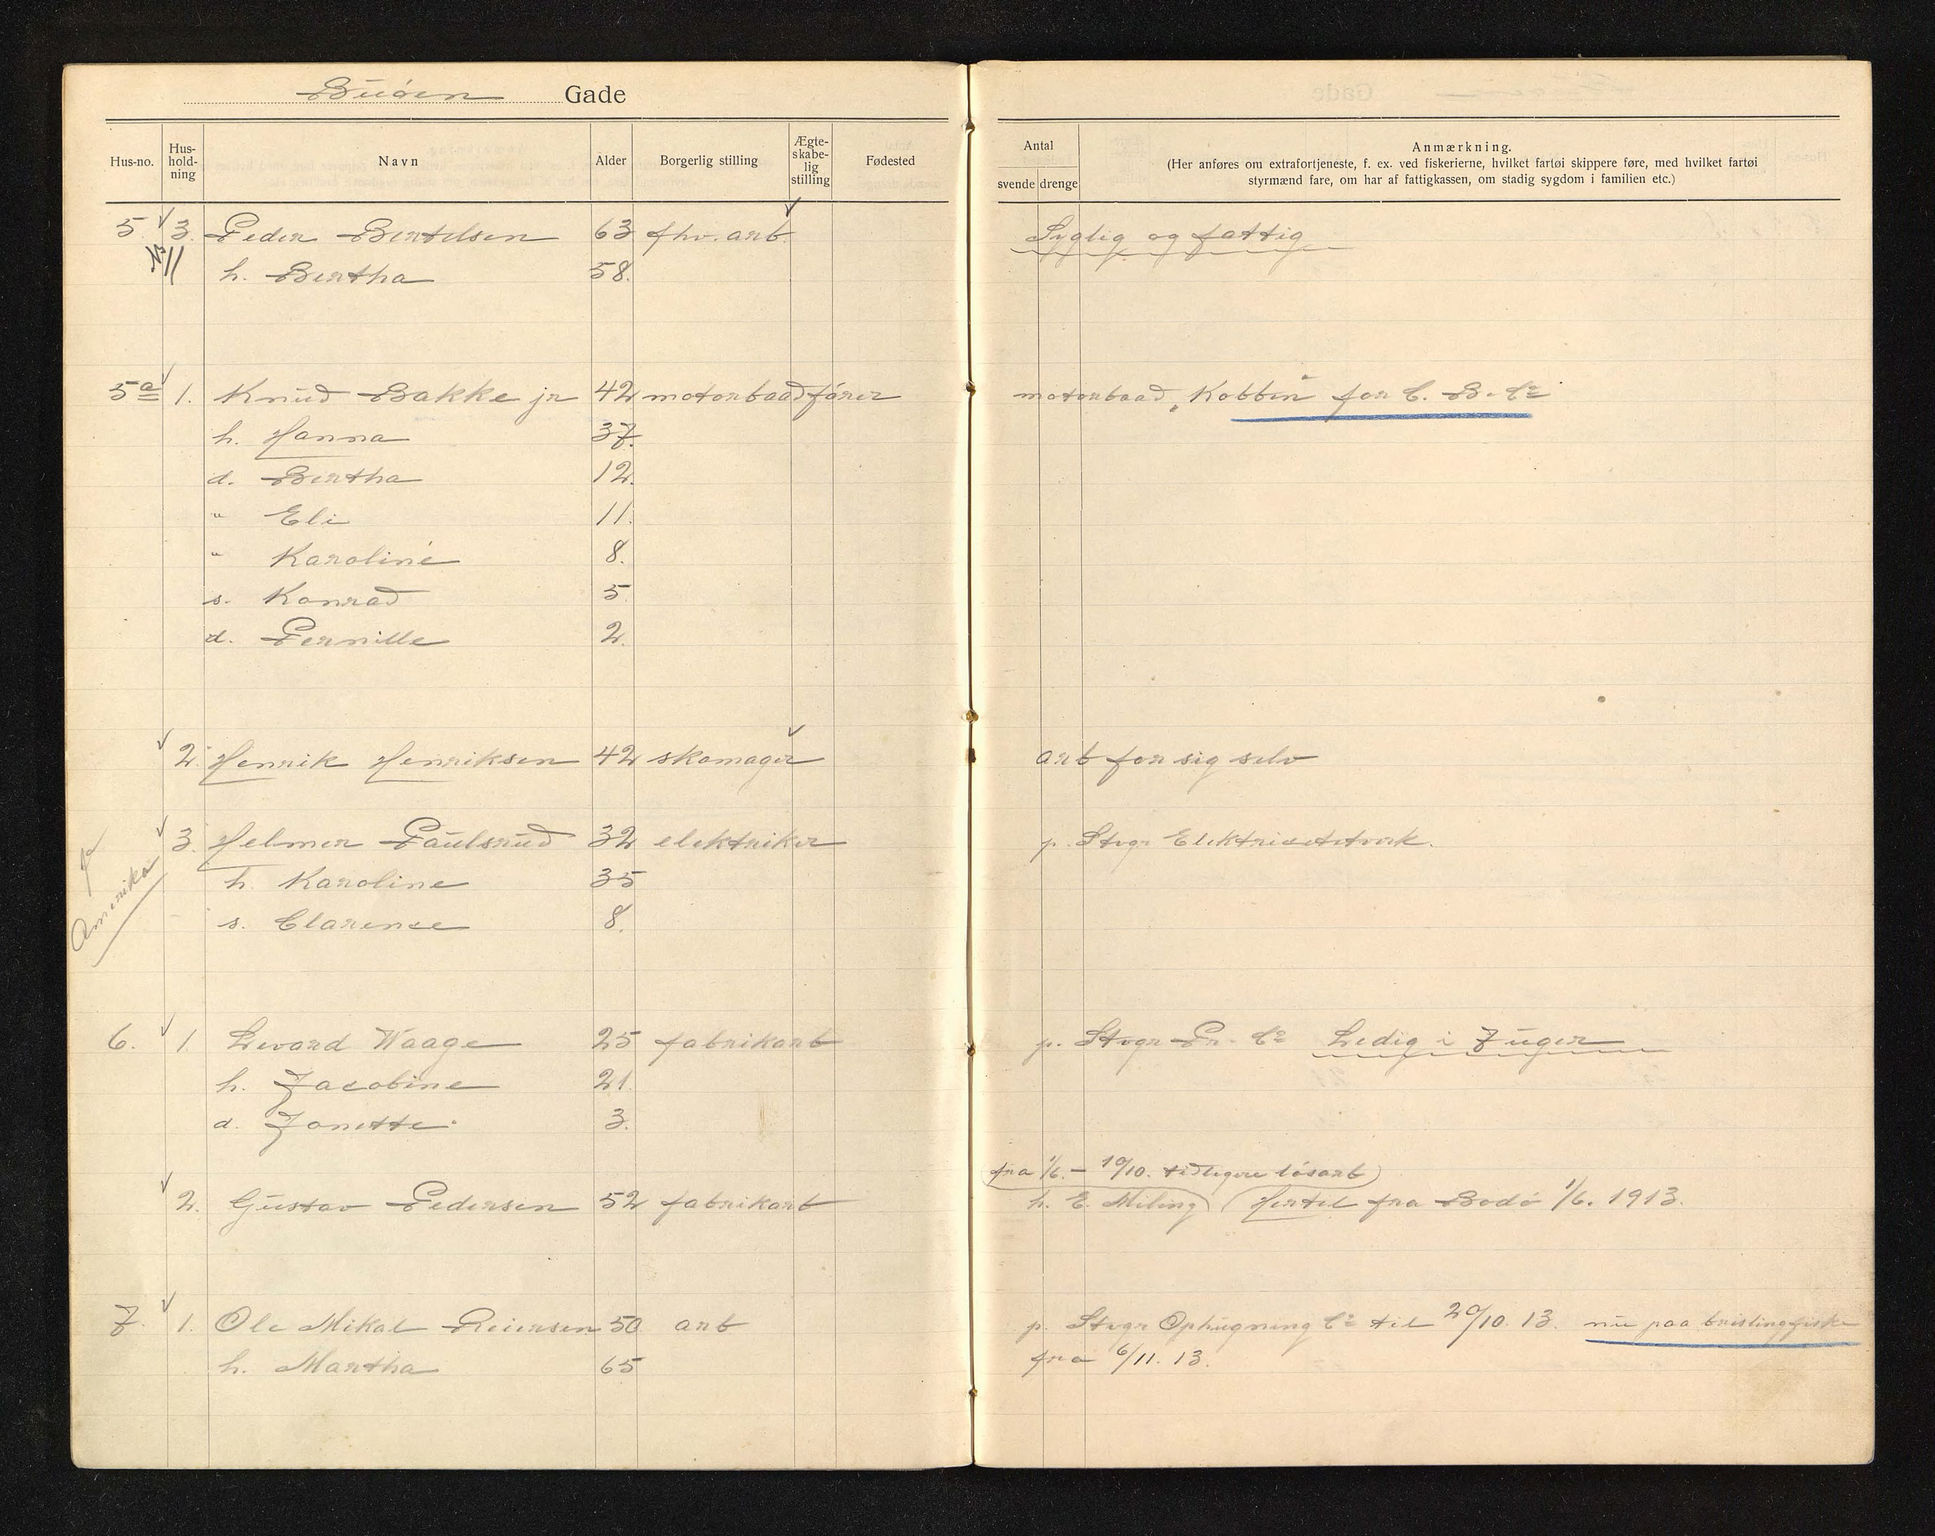 Buøen Gade
Hus-no. Hus-hold-ning Navn Alder Borgerlig stilling Ægte-skabe-lig stilling Fødested
Antal svende drenge Anmærkning.
(Her anføres om extrafortjeneste, f. ex. ved fiskerierne, hvilket fartøi skippere føre, med hvilket fartøi
styrmænd fare, om har af fattigkassen, om stadig sygdom i familien etc.)
5. 3. Peder Bertelsen 63 fhv. arb. Syglig og fattig
No 11 h. Bertha 58.
5a 1. Knud Bakke jr 42 motorbaadfører motorbaad „Kobben" for C. B. Co
h. Hanna 37.
d. Bertha 12.
" Eli 11.
" Karoline 8.
s. Konrad 5
d. Pernille 2.
2. Henrik Henriksen 42 skomager arb for sig selv
3. Helmer Paulsrud 32 elektriker p. Stvgr Elektricitetsverk.
Amerika
h. Karoline 35
s. Clarence 8.
6. 1. Sevard Waage 25 fabrikarb p. Stvgr Pr. Co Ledig i 7 uger
h. Jacobine 21.
d. Janette 3.
fra 1/6. – 10/10. tidligere løsarb
2. Gustav Pedersen 52 fabrikarb h. E. Miling (Hertil fra Bodø 1/6. 1913.
7. 1. Ole Mikal Reiersen 50 arb p. Stvgr Ophugning Co til 20/10. 13. nu paa brislingfiske
h. Martha 65 fra 6/11. 13.